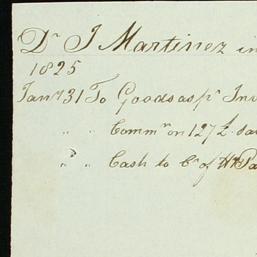 Dr J Martinez in
1825
Jany 31 To Goods as pr Inv
" " Commn on 127 £
" " Cash to Cr of